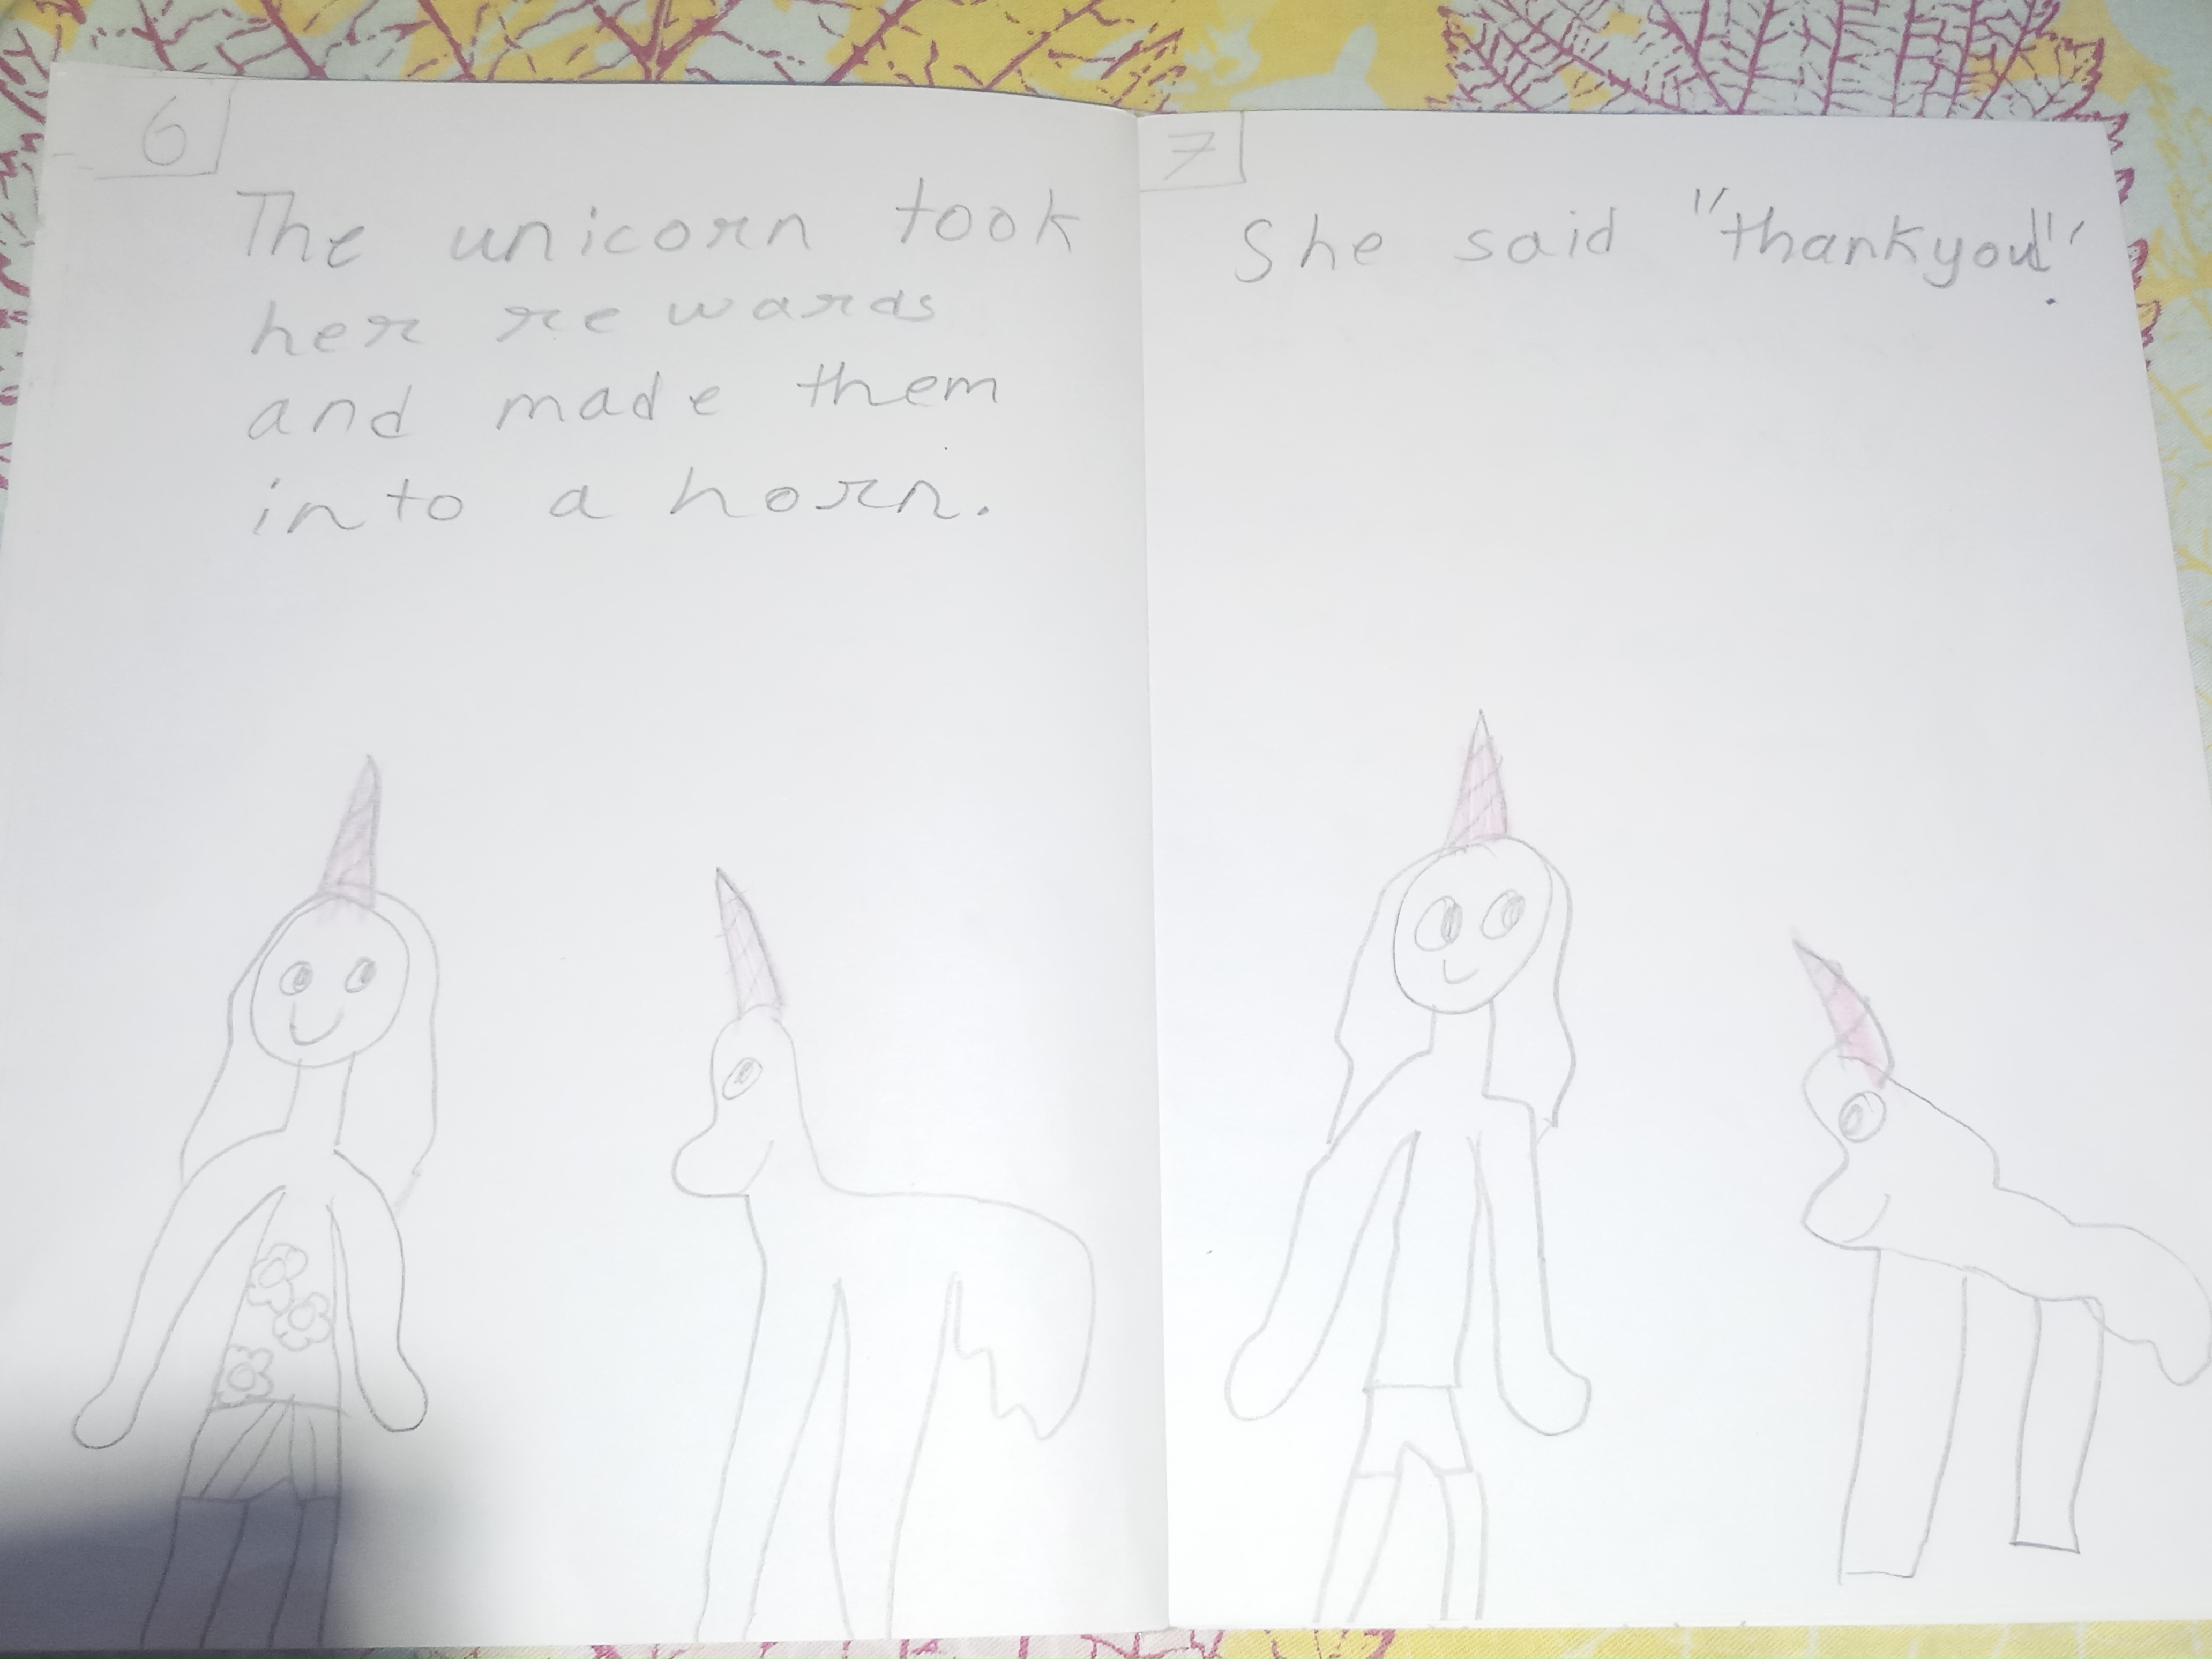 6
The unicorn took
her rewards
and made them
into a horn.
7
She said "thankyou!"